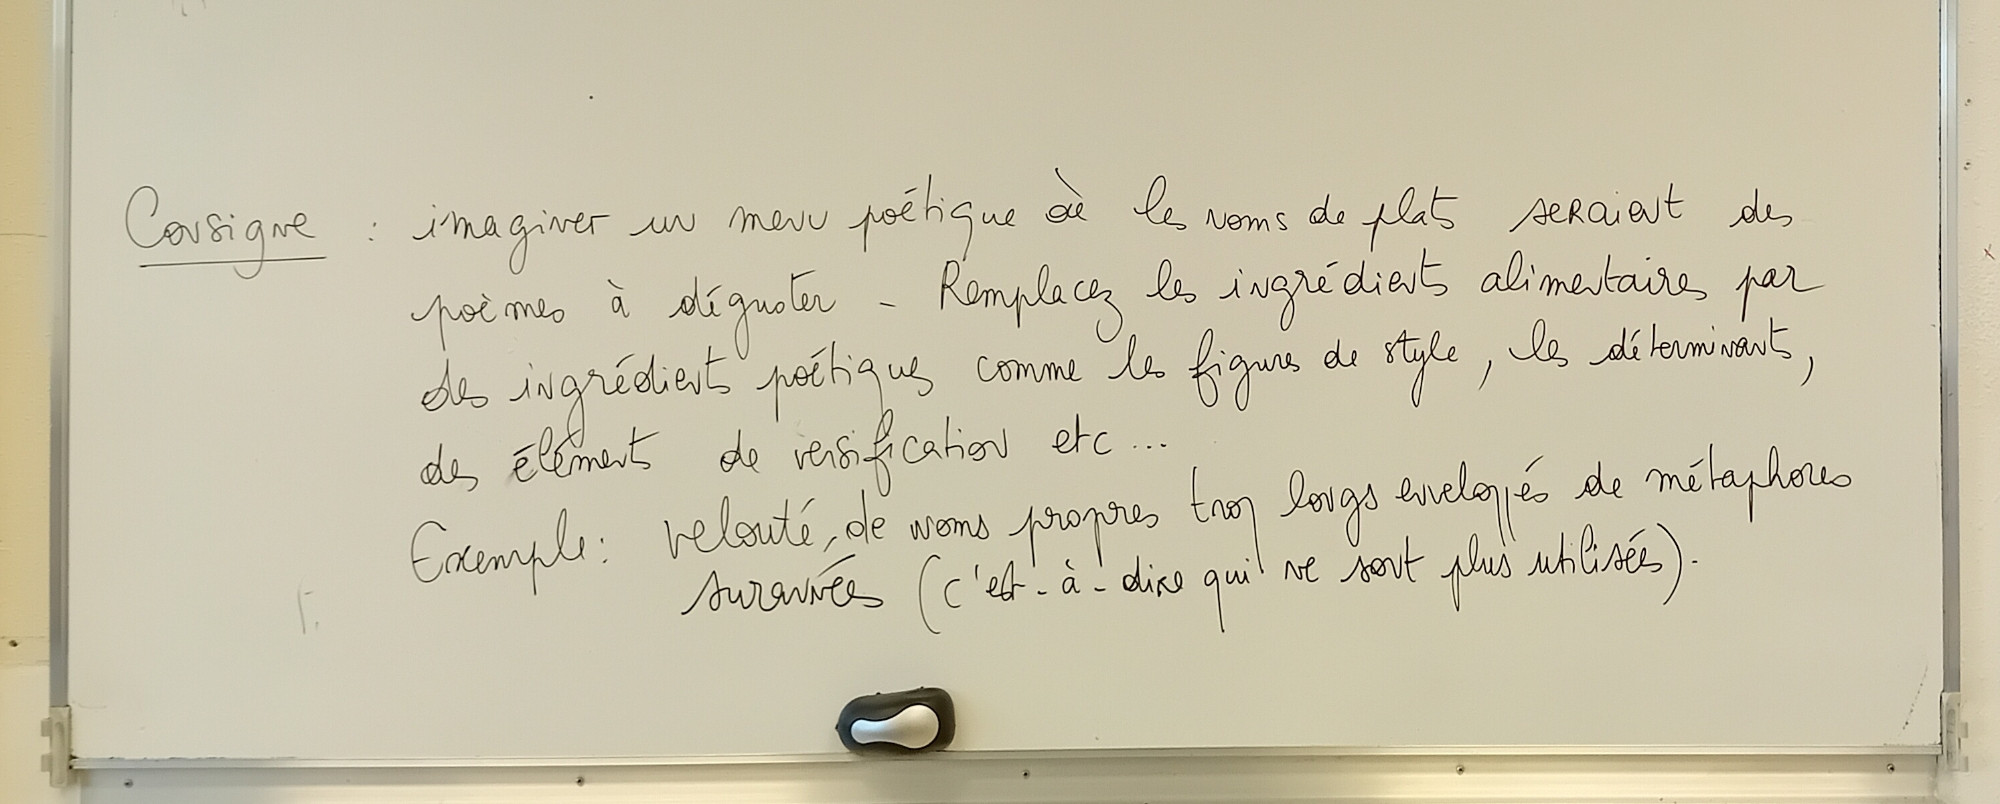 Consigne : imaginer un menu poétique où les noms de plats seraient des
poèmes à déguster - Remplacez les ingrédients alimentaires par
des ingrédients poétiques comme les figures de style, les déterminants,
des éléments de versification etc ...
Exemple : velouté de noms propres trop longs enveloppés de métaphores
surannées (c'est-à-dire qui ne sont plus utilisées).